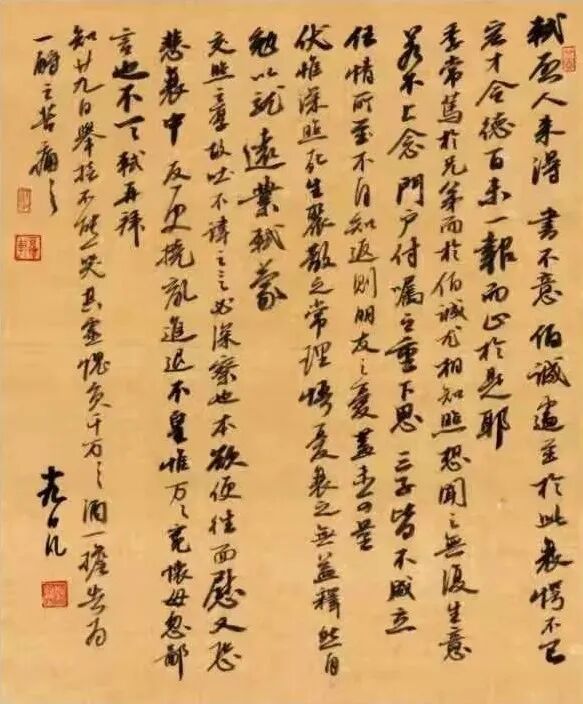 軾啓人来得書不意伯誠遽至於此哀愕不已
宏才令德百未一報而止於是耶
季常篤於兄弟而於伯誠尤相知照想聞之無復生意
若不上念門户付嘱之重下思三子皆不成立
任情所至不自知返則朋友之憂盖未可量
伏惟深照死生聚散之常理悟憂哀之無益釋然自
勉以就遠業軾蒙
交照之厚故吐不諱之言必深察也本欲便往面慰又恐
悲哀中反更撓亂進退不皇惟万万寛懷毋忽鄙
言也不一一軾再拜
知廿九日舉挂不能一哭其靈愧負千万々酒一擔告為
一酹之苦痛々